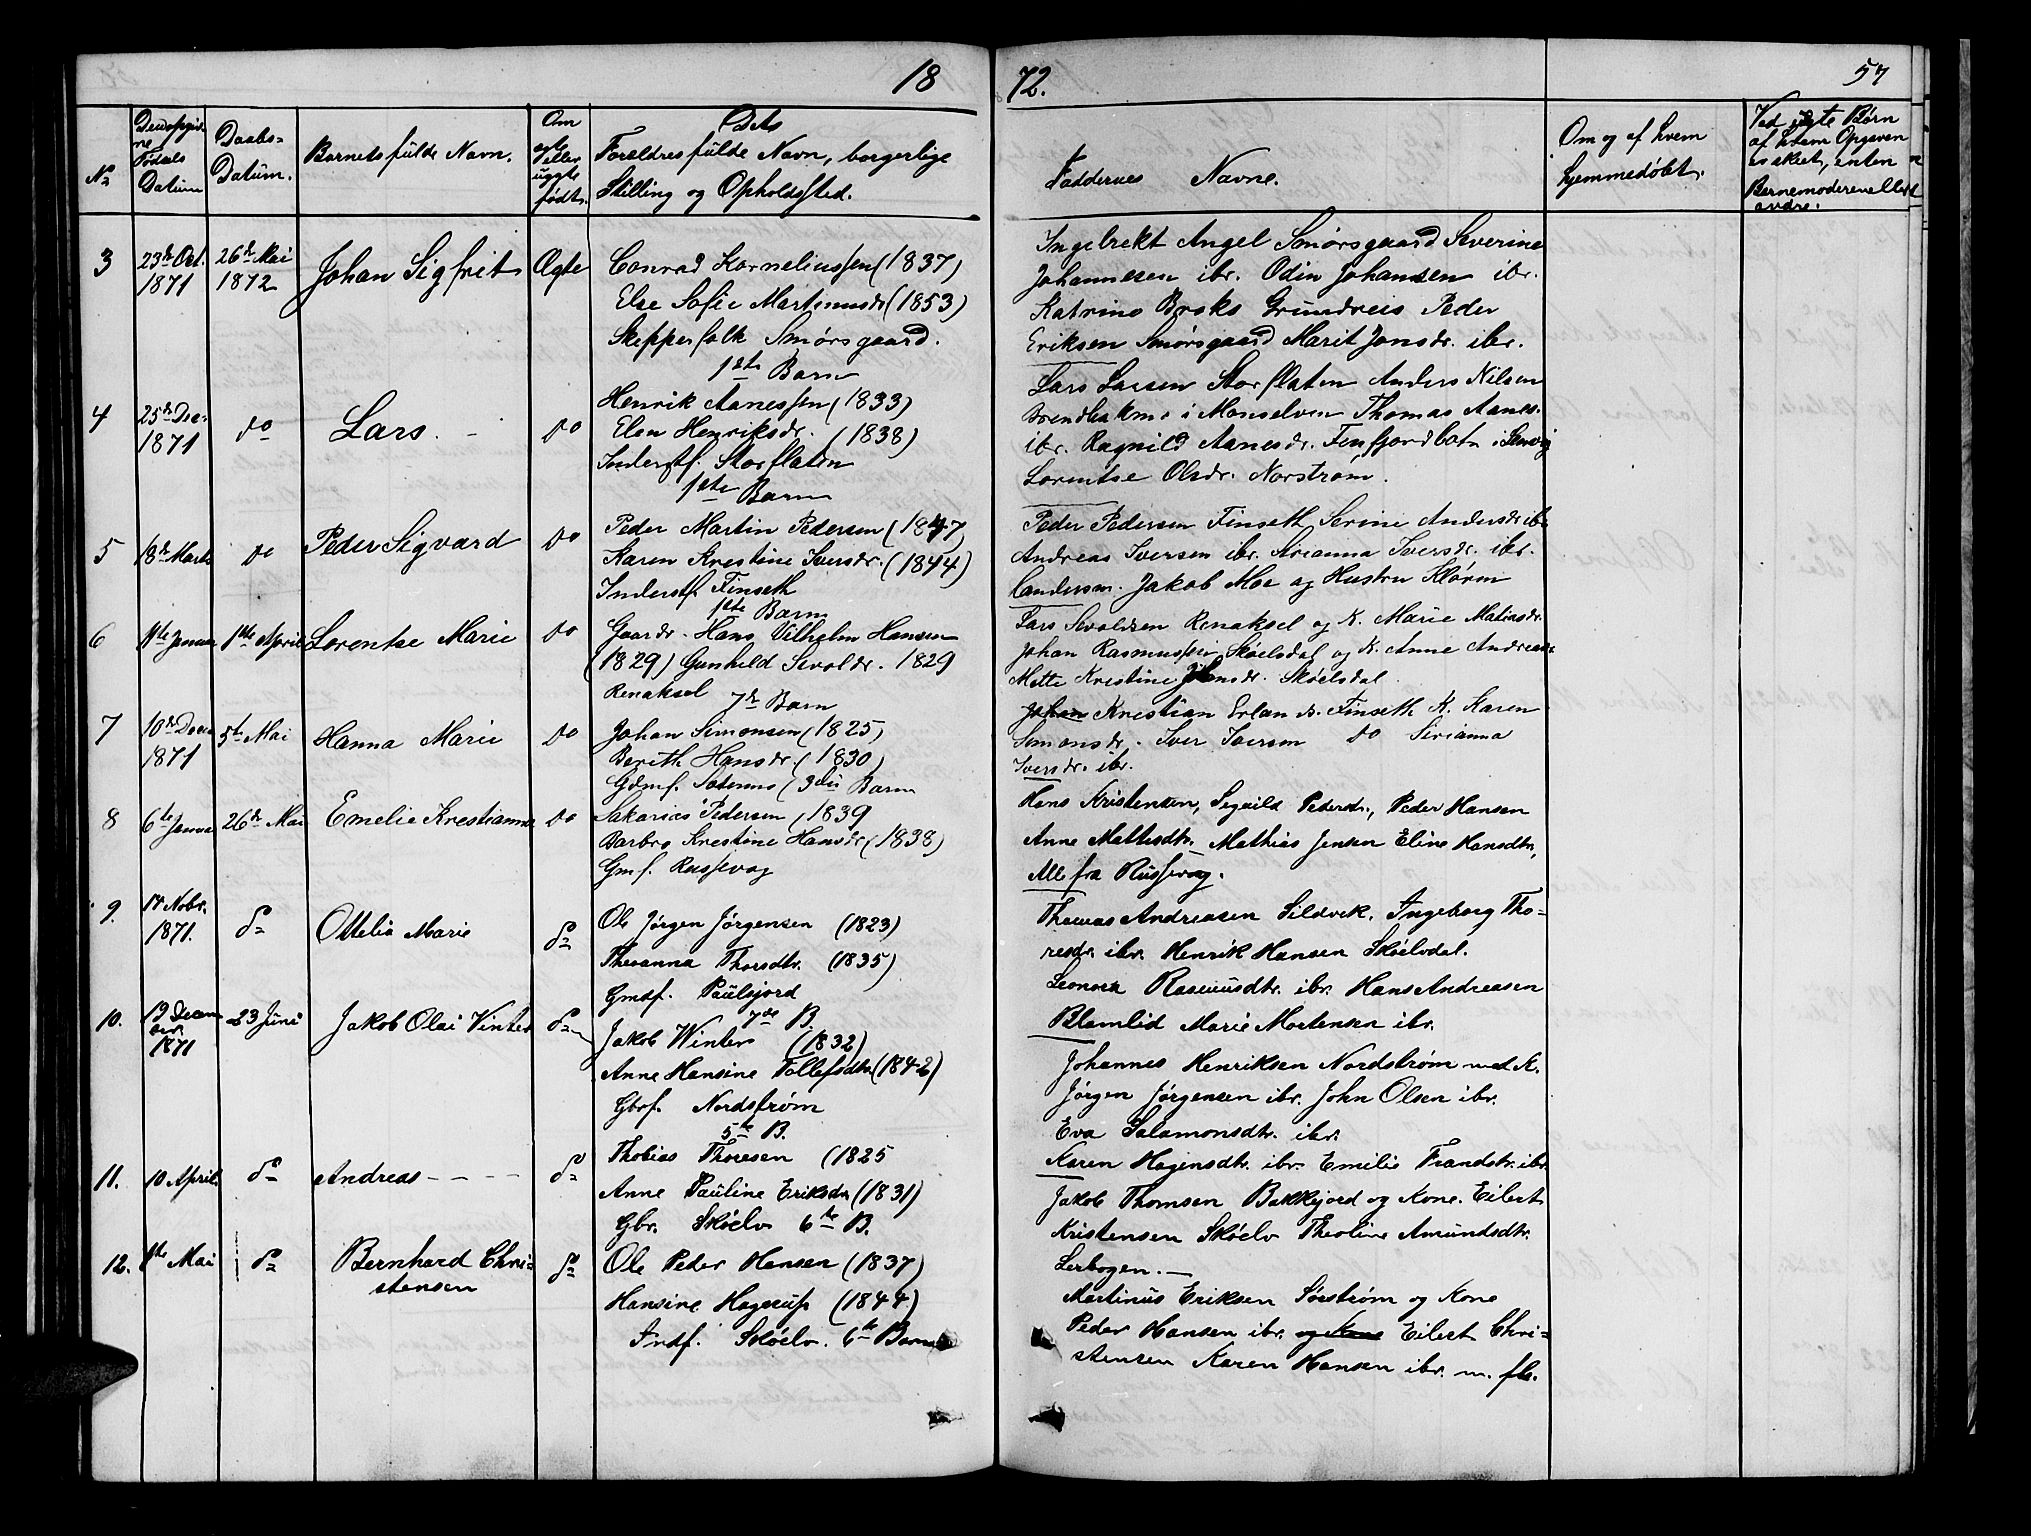 18
72.
57
No
Den opgiv-
ne
Fødsels
Datum
Daabs-
Datum.
Barnets fulde Navn.
Om
ægte
eller
uægte
født.
Dets
Forældres fulde Navn, borgerlige
Stilling og Opholdssted.
Faddernes Navne.
Om og af hvem
hjemmedøbt.
Ved uægte Børn
af hvem Opgiven
er skeet, enten
Barnemoderen eller
andre.
3
23de Oct.
1871
26de Mai
1872
Johan Sigfrit
Ægte
Conrad Korneliussen (1837)
Else Sofie Martinusdr (1853)
Skipperfolk Smørsgaard.
1ste Barn
Ingebrekt Angel Smørsgaard Severine
Johannesen ibr. Odin Johansen ibr.
Katrine Broks Grundreis Peder
Eriksen Smørsgaard Marit Jonsdr. ibr.
4
25de Dec.
1871
do
Lars. -
do
Henrik Aanessen (1833)
Elen Henriksdr. (1838)
Inderstf. Storflaten
1ste Barn
Lars Larsen Storflaten Anders Nilsen
i Monselven Thomas Aanes.
ibr. Ragnild Aanesdr. Finfjordbotn i Lenvig
Lorentse Olsdr. Norstrøm.
5
18de Marts
do
Peder Sigvard
do
Peder Martin Pedersen (1847
Karen Kristine Iversdr. (1844)
Inderstf. Finseth
1ste Barn
Peder Pedersen Finseth Serine Andersdr ibr
Andreas Iversen ibr. Sirianna Iversdr. ibr.
Jakob Moe og Hustru
6
11te Januar
1ste April
Lorentse Marie
do
Gaardr. Hans Vilhelm Hansen
(1829) Gunhild Sivoldr. 1829
Renaksel 7de Barn
Lars Sivoldsen Renaksel og K. Marie Matiasdr.
Johan Rasmussen Skøelsdal og K. Anne Andreasdr
Mette Kristine Johnsdr. Skøelsdal.
7
10de Decbr
1871
5te Mai
Hanna Marie
do
Johan Simonsen (1825
Berith Hansdr. (1830)
Gdmf. Søternes (3die Barn
Johan Kristian Finseth K. Karen
Simonsdr. Iver Iversen do Sirianna
Iversdr. ibr.
8
6te Januar
26de Mai
Emelie Kristianna
do
Sakarias Pedersen (1839
Barbro Kristine Hansdr (1838)
Gmf. Russevog
Hans Kristensen, Sigvild Pedersdr., Peder Hansen
Anne Mattisdtr. Mathias Jensen Eline Hansdtr,
Alle fra Russevog.
9.
17 Nobr.
1871.
do
Ottelie Marie
do
Ole Jørgen Jørgensen (1823)
Theranna Thorsdtr. (1835)
Gmdf. Paulsjord
7de B.
Thomas Andreasen Sildvik, Ingeborg Tho-
resdr. ibr. Henrik Hansen Skøelvdal.
Leonora Rasmusdtr. ibr. Hans Andreasen
Blomlid Marie Mortensen ibr.
10.
19 Decem
ber.
1871
23 Juni
Jakob Olai Vinter
do
Jakob Winter (1832)
Anne Hansine Tollefsdtr (1842)
Gbrf. Nordstrøm
5te B.
Johannes Henriksen Nordstrøm med K.
Jørgen Jørgensen ibr. John Olsen ibr.
Eva Salamonsdtr. ibr.
Karen Hagensdtr. ibr. Emilie Frandstr. ibr
11.
10 April
do
Andreas - - - -
do
Thobias Thoresen (1825
Anne Pauline Eriksdr (1831)
Gbr. Skøelv 6te B.
Jakob Thomsen Bakkejord og Kone. Eilert
Kristensen Skøelv Theoline Amundsdtr.
Lerbogen. -
12.
1ste Mai
do
Bernhard Chri-
stensen
do
Ole Peder Hansen (1837
Hansine Hagerup (1844)
Indf. Skøelv. 6te Barn
Martinus Eriksen Sørstrøm og Kone
Peder Hansen ibr. og Kone Eilert Chri-
stensen Karen Hansen ibr. m. fle.